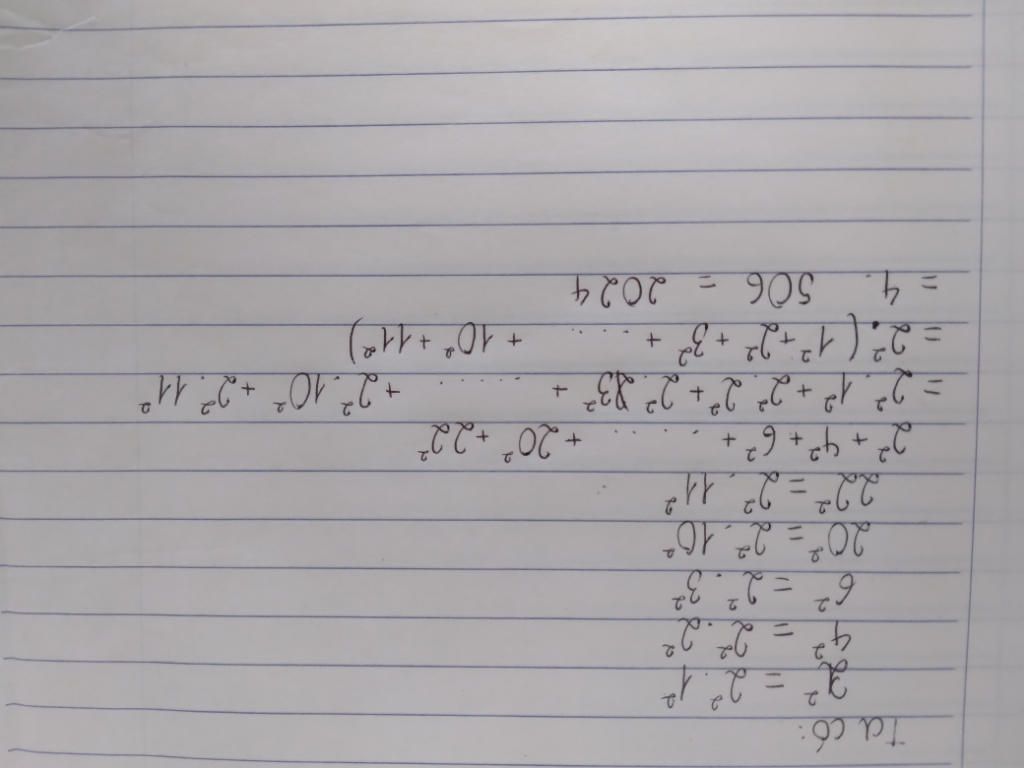 Ta có:
2² = 2² . 1²
4² = 2² . 2²
6² = 2² . 3²
20² = 2² . 10²
22² = 2² . 11²
2² + 4² + 6² + . . . . + 20² + 22²
= 2² . 1² + 2² . 2² + 2² . 3² + . . . . . + 2² . 10² + 2² . 11²
= 2² . (1² + 2² + 3² + . . . . . + 10² + 11²)
= 4 . 506 = 2024